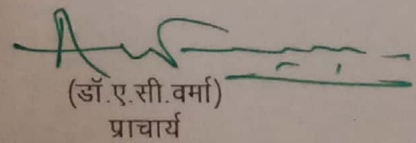 (डॉ.ए.सी.वर्मा)
प्राचार्य